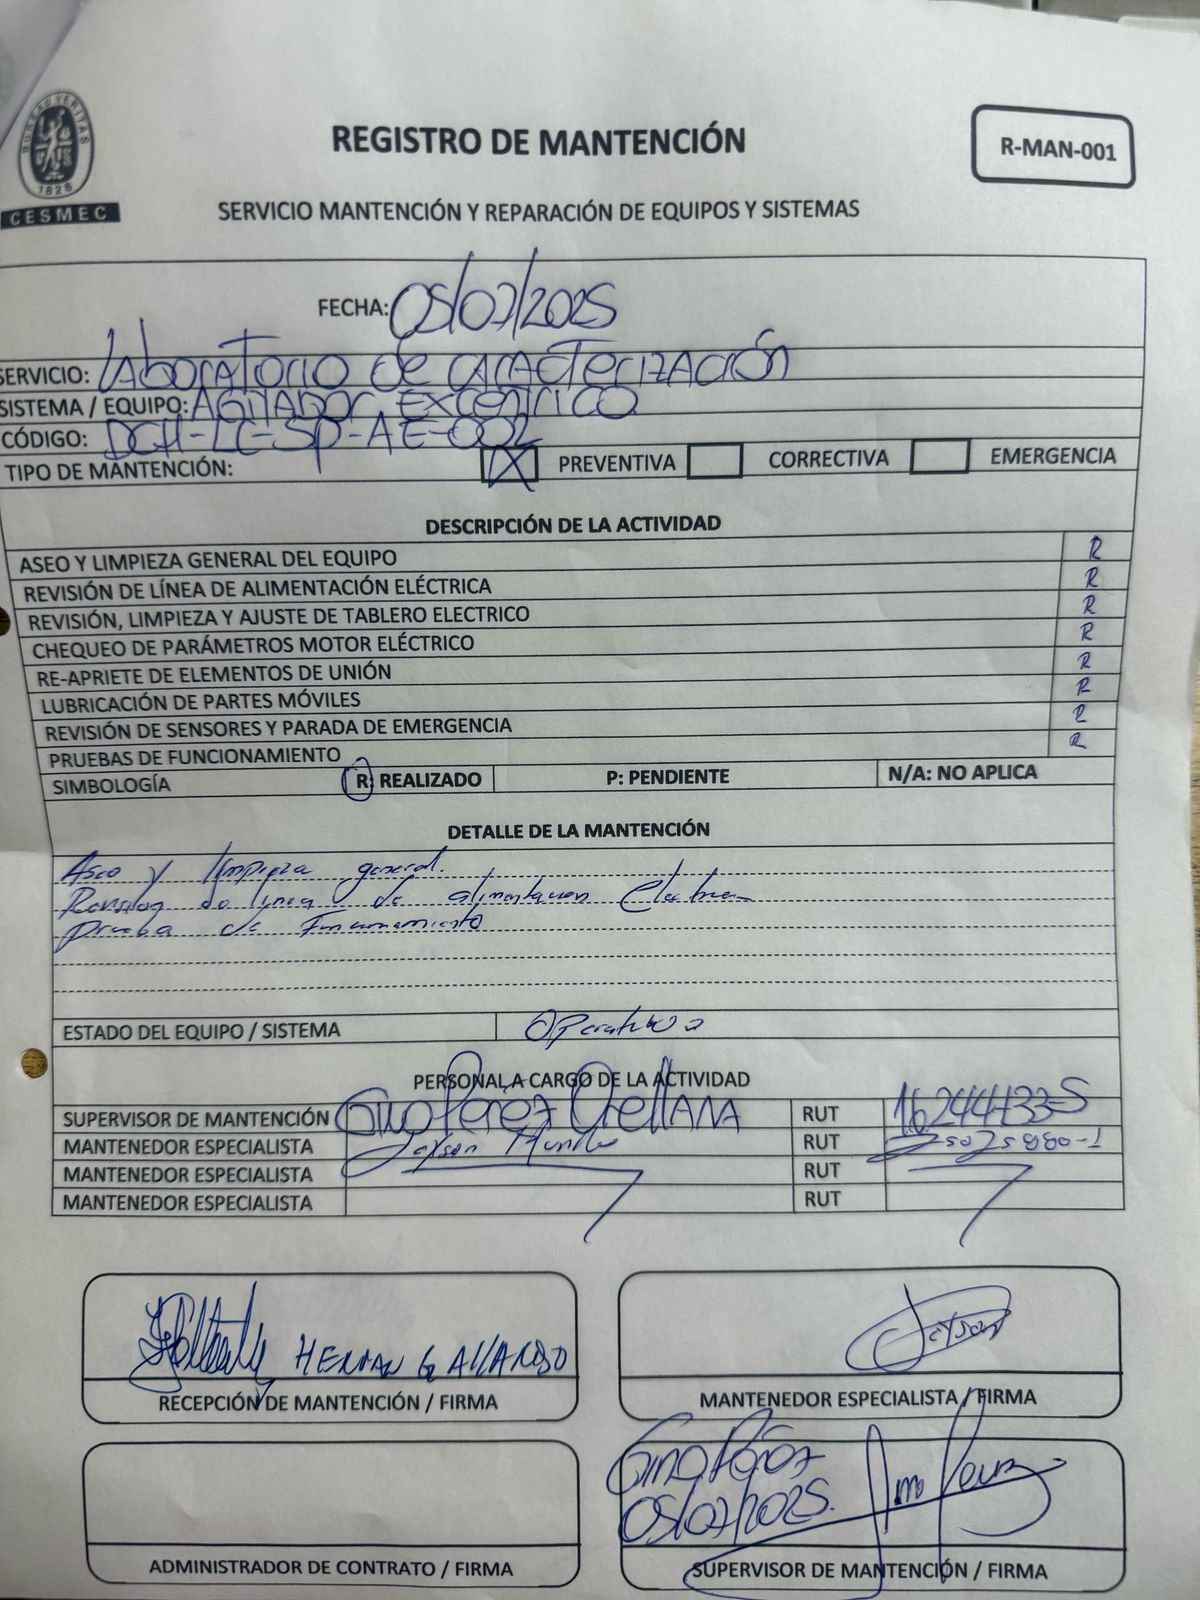 BUREAU VERITAS
1828
CESMEC
REGISTRO DE MANTENCIÓN
R-MAN-001
SERVICIO MANTENCIÓN Y REPARACIÓN DE EQUIPOS Y SISTEMAS
FECHA: 05/07/2025
SERVICIO: Laboratorio de caracterización
SISTEMA / EQUIPO: Agitador Excéntrico
CÓDIGO: DCH-LC-SP-AE-002
TIPO DE MANTENCIÓN: X PREVENTIVA CORRECTIVA EMERGENCIA
DESCRIPCIÓN DE LA ACTIVIDAD
ASEO Y LIMPIEZA GENERAL DEL EQUIPO R
REVISIÓN DE LÍNEA DE ALIMENTACIÓN ELÉCTRICA R
REVISIÓN, LIMPIEZA Y AJUSTE DE TABLERO ELECTRICO R
CHEQUEO DE PARÁMETROS MOTOR ELÉCTRICO R
RE-APRIETE DE ELEMENTOS DE UNIÓN R
LUBRICACIÓN DE PARTES MÓVILES R
REVISIÓN DE SENSORES Y PARADA DE EMERGENCIA R
PRUEBAS DE FUNCIONAMIENTO R
SIMBOLOGÍA R: REALIZADO P: PENDIENTE N/A: NO APLICA
DETALLE DE LA MANTENCIÓN
Aseo y limpieza general.
Revision de linea de alimentacion Electrica
Prueba de Funcionamiento
ESTADO DEL EQUIPO / SISTEMA Operativo
PERSONAL A CARGO DE LA ACTIVIDAD
SUPERVISOR DE MANTENCIÓN Gino Pérez Orellana RUT 16.244.133-5
MANTENEDOR ESPECIALISTA Jayson RUT 25025880-1
MANTENEDOR ESPECIALISTA RUT
MANTENEDOR ESPECIALISTA RUT
HERNAN GALLARDO
RECEPCIÓN DE MANTENCIÓN / FIRMA
Jayson
MANTENEDOR ESPECIALISTA / FIRMA
Gino Pérez
05/07/2025.
ADMINISTRADOR DE CONTRATO / FIRMA
SUPERVISOR DE MANTENCIÓN / FIRMA